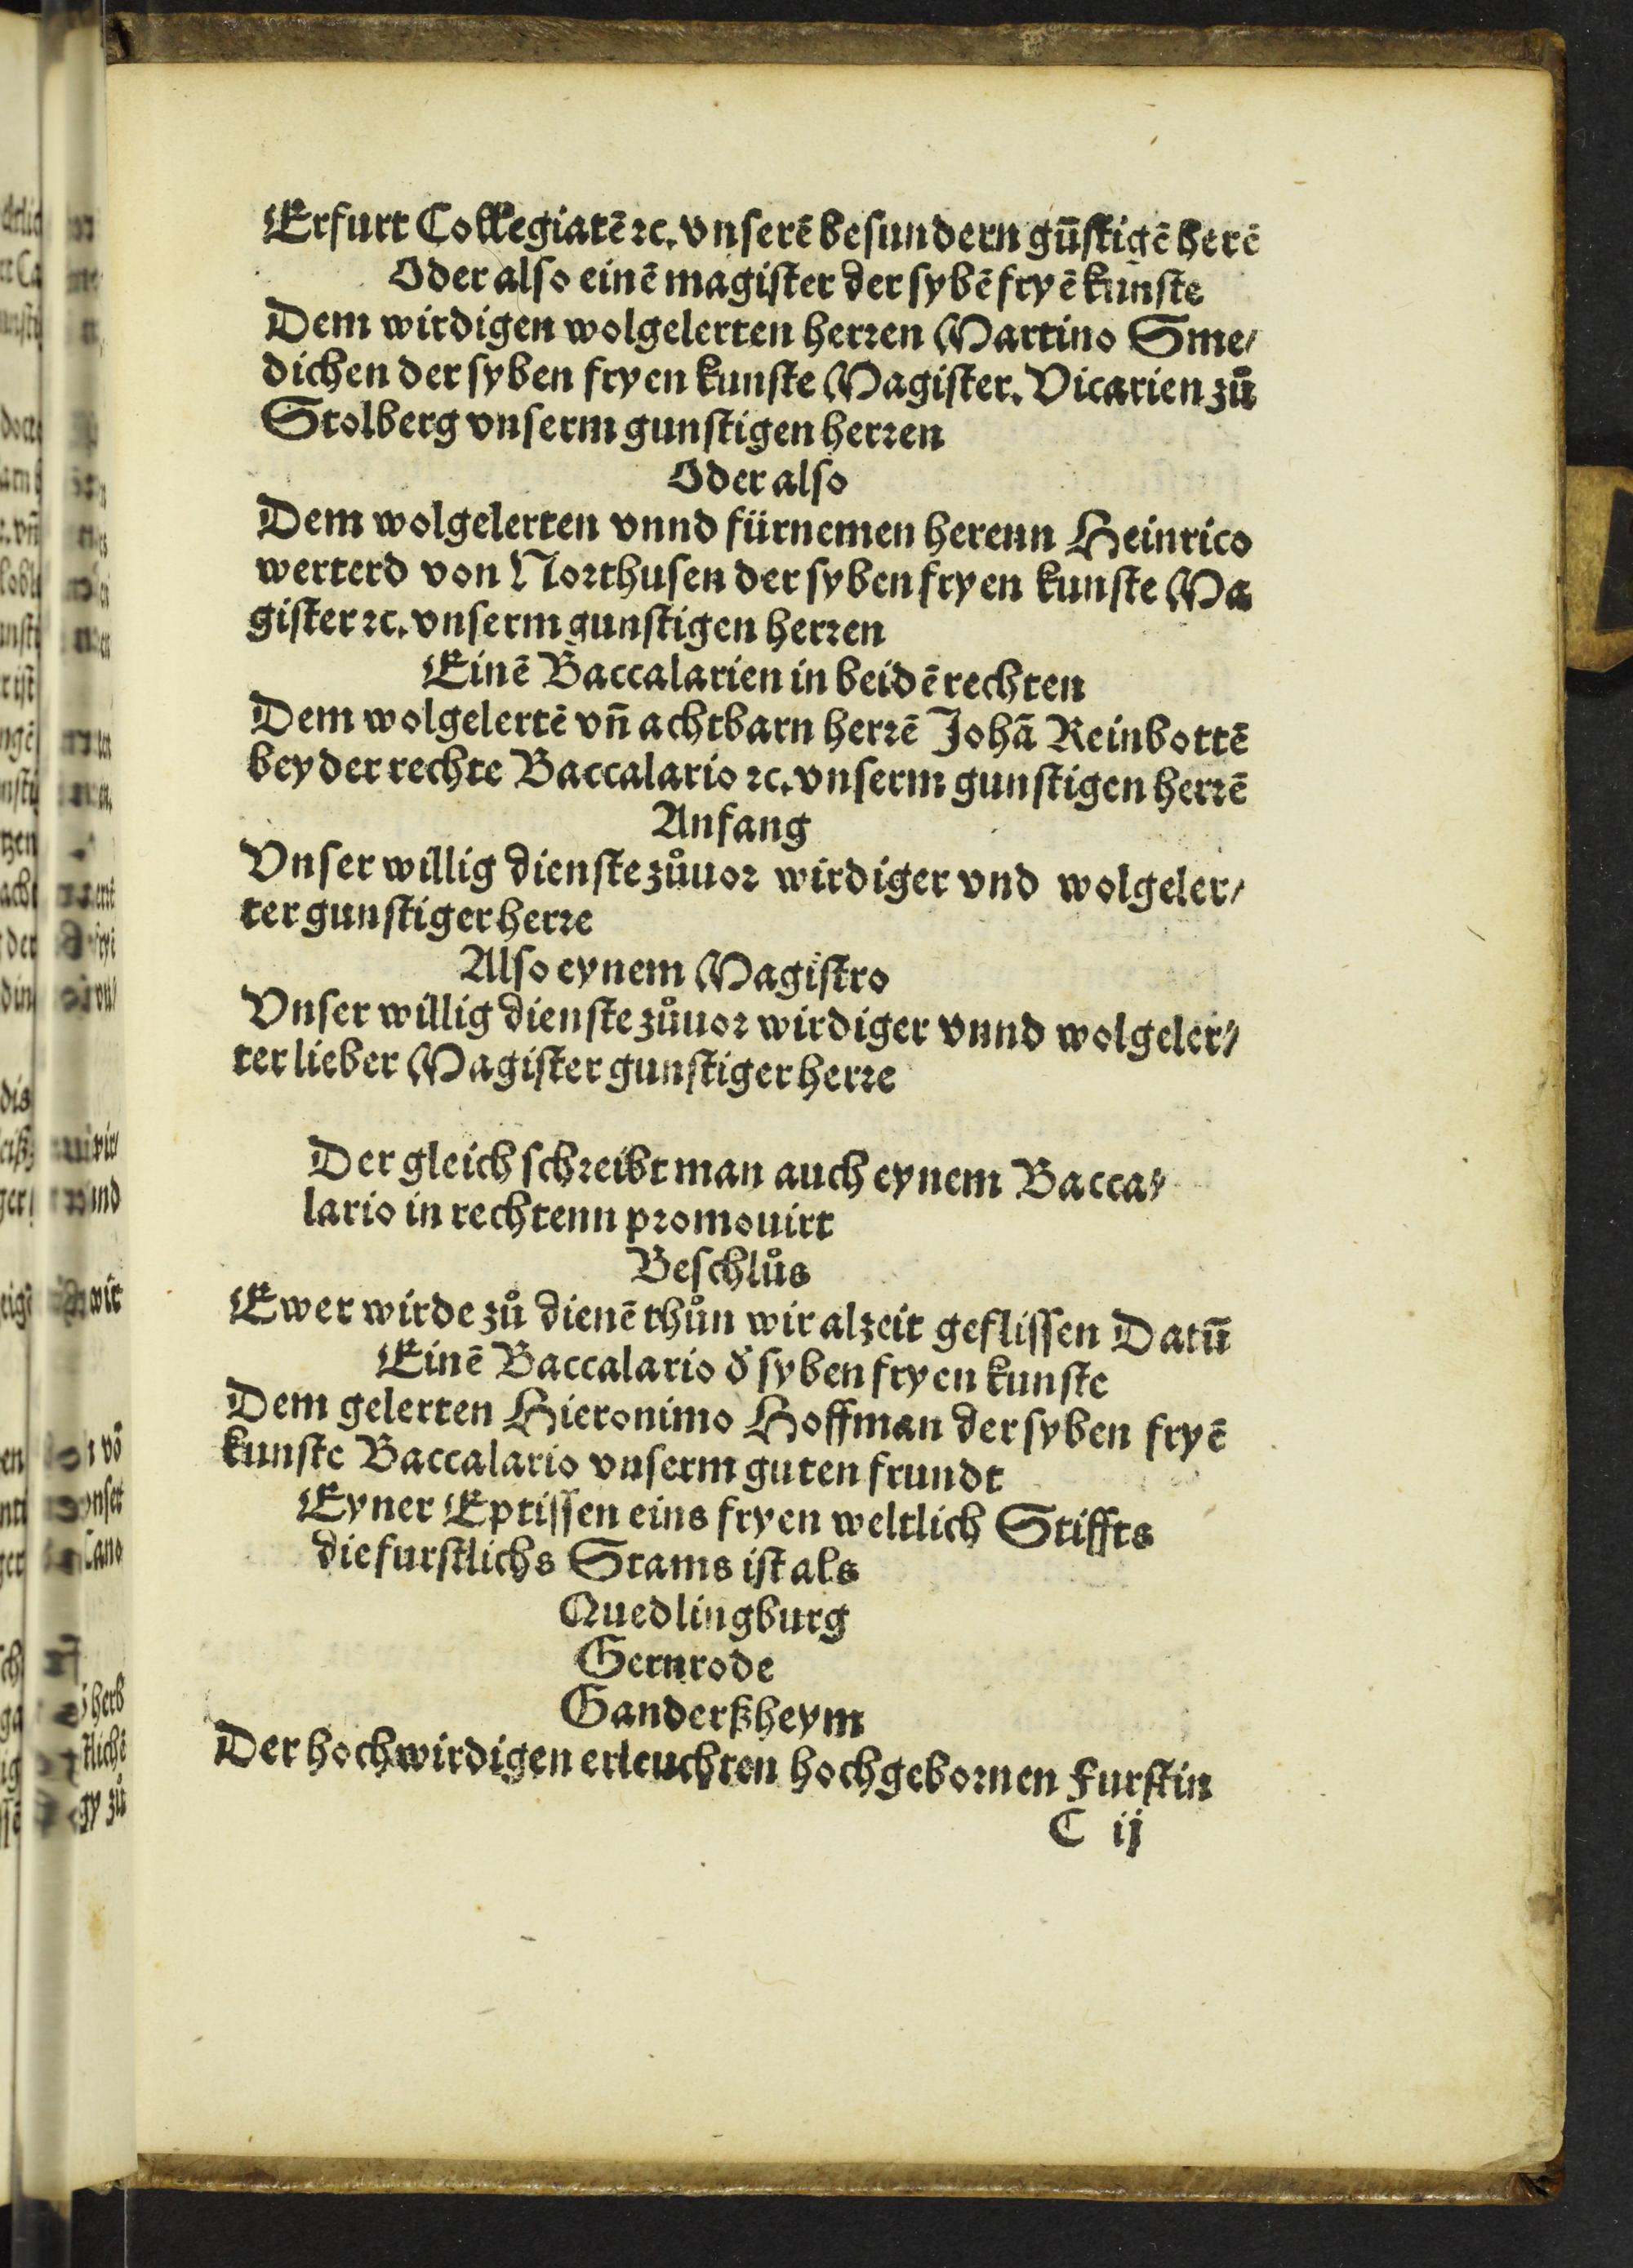 Erfurt Collegiatē ⁊c. vnserē besundern gūstigē herē
Oder also einē magister der sybē fryē kunste
Dem wirdigen wolgelerten herren Martino Sme/
dichen der syben fryen kunste Magister. Vicarien zů
Stolberg vnserm gunstigen herren
Oder also
Dem wolgelerten vnnd fürnemen herenn Heinrico
werterd von Northusen der syben fryen kunste Ma
gister ⁊c. vnserm gunstigen herren
Einē Baccalarien in beidē rechten
Dem wolgelertē vn̄ achtbarn herrē Johā Reinbottē
beyder rechte Baccalario ⁊c. vnserm gunstigen herrē
Anfang
Vnser willig dienste zůuor wirdiger vnd wolgeler/
ter gunstiger herre
Also eynem Magistro
Vnser willig dienste zůuor wirdiger vnnd wolgeler/
ter lieber Magister gunstiger herre
Der gleich schreibt man auch eynem Bacca/
lario in rechtenn promouirt
Beschlůs
Ewer wirde zů dienē thůn wir alzeit geflissen Datū
Einē Baccalario d̕ syben fryen kunste
Dem gelerten Hieronimo Hoffman der syben fryē
kunste Baccalario vnserm guten frundt
Eyner Eptissen eins fryen weltlich Stiffts
die furstlichs Stams ist als
Quedlingburg
Gernrode
Ganderßheym
Der hochwirdigen erleuchten hochgebornen Furstin
C ij